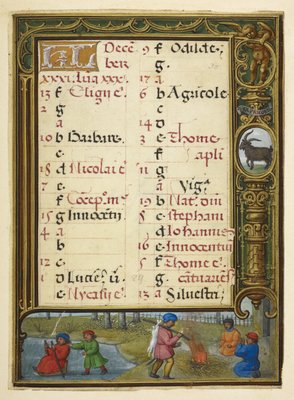 KL Decē
ber
xxxi. lūa xxx.
13 f Eligii e.
2 g
a
10 b Barbare.
c
18 d Nicolai e.
e
7 f Cōcep. m.
15 g Innocentii
4 a
b
12 c
1 d Lucie. v.
e Nycasii e.
9 f Odilde.
g.
17 a
6 b Agricole
c
14 d
3 e Thome
f apli
11 g
a Vigᵃ
19 b Nat. dni
8 c Stephani
d Iohannis
16 e Innocentiū
5 f Thome
g cātuarieñ.
13 a Siluestri